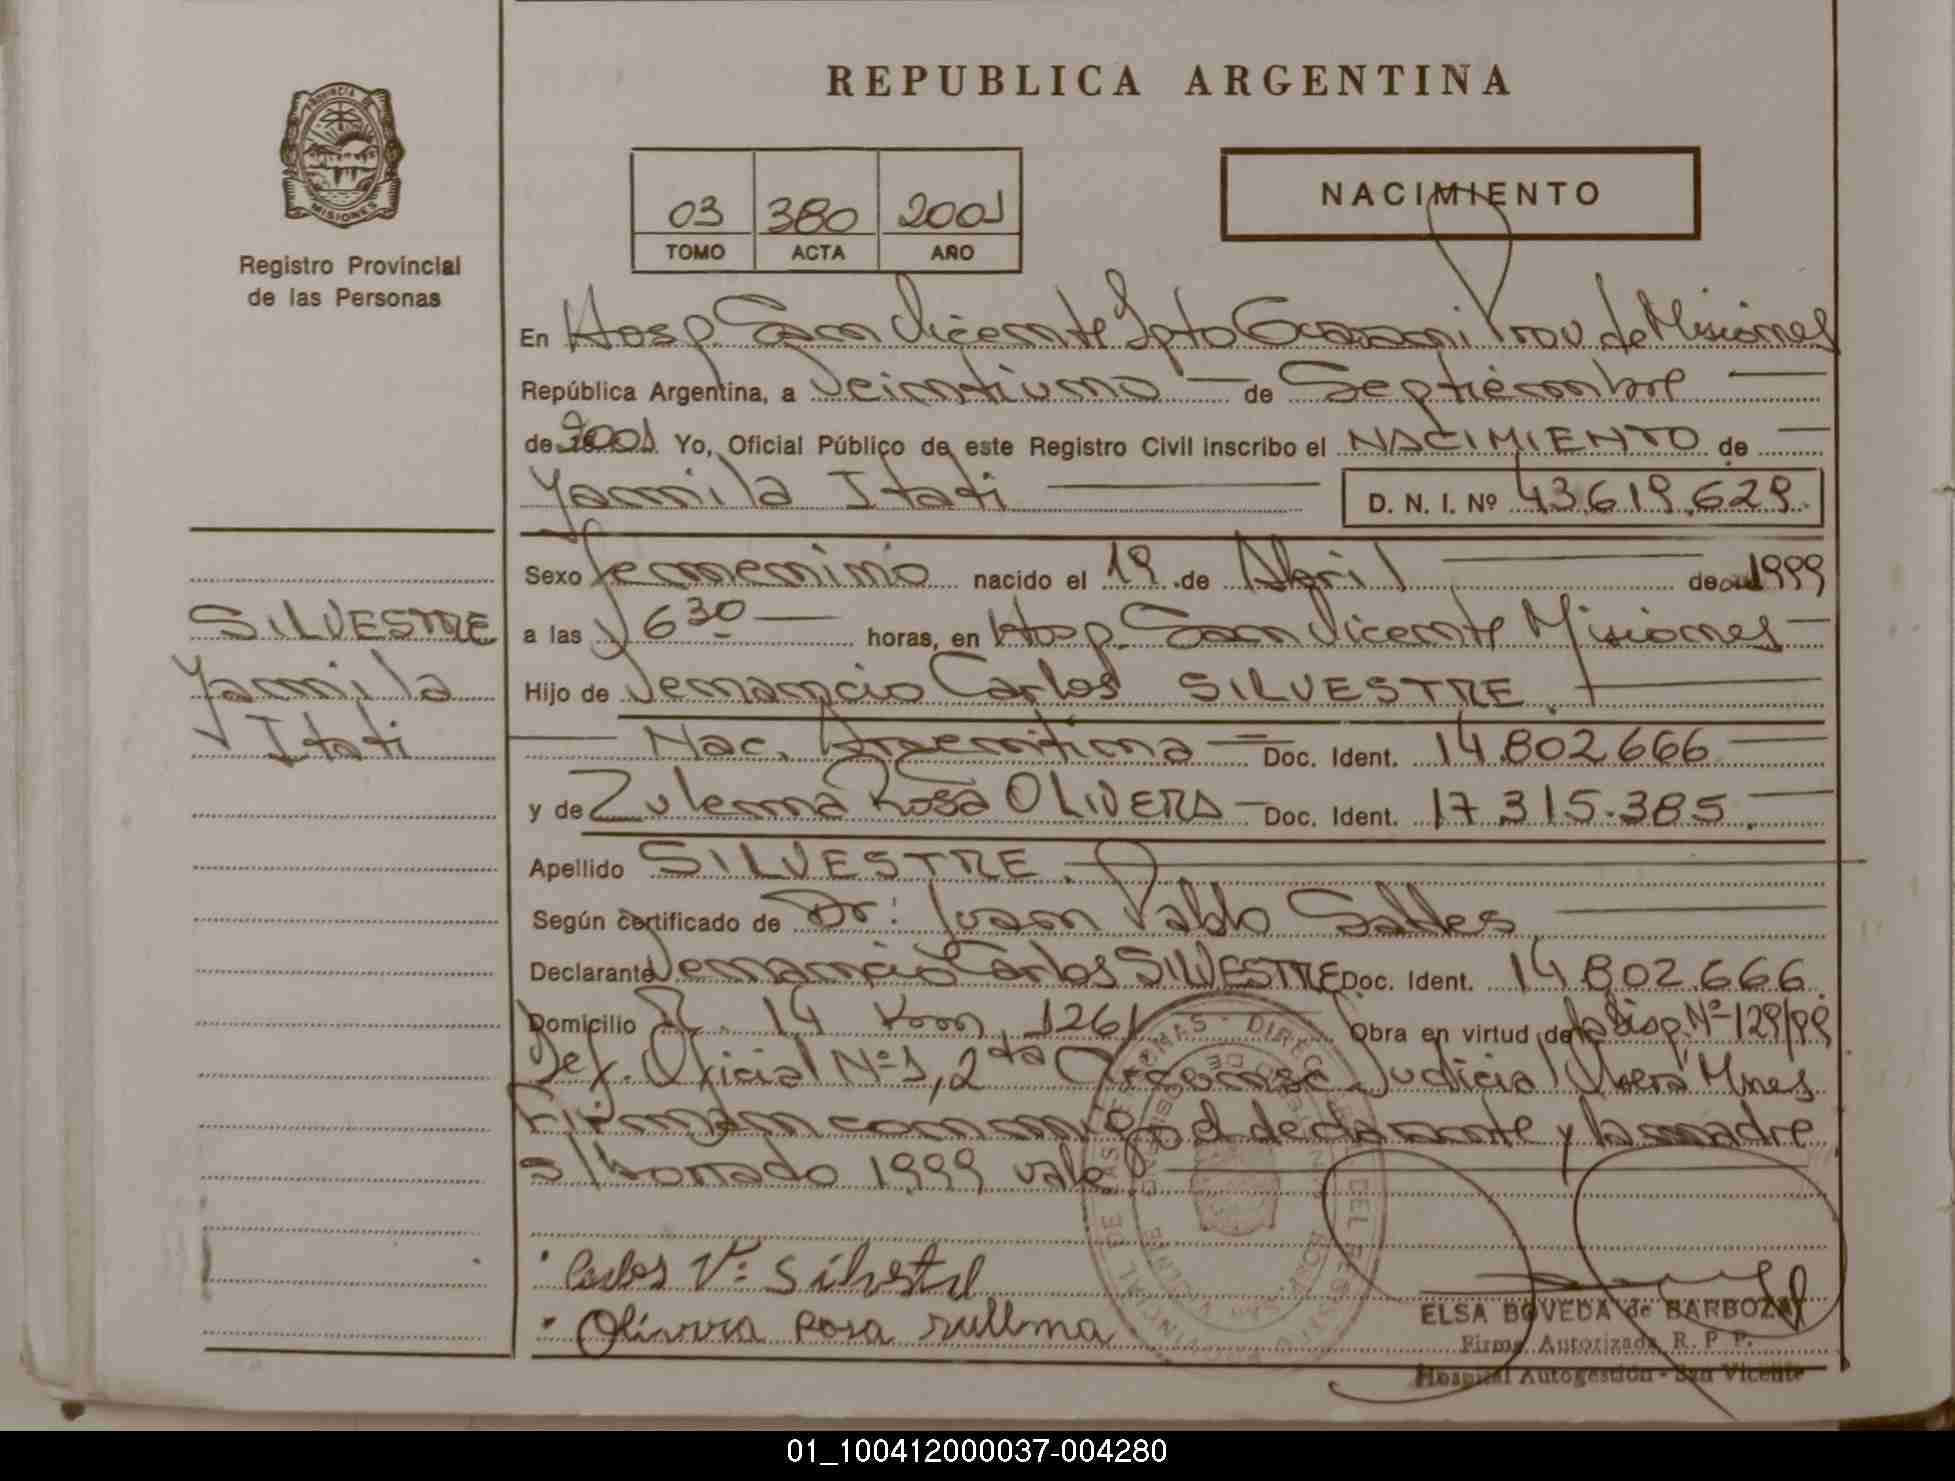 REPUBLICA ARGENTINA
PROVINCIA DE
MISIONES
Registro Provincial
de las Personas
03 380 2001
TOMO ACTA AÑO
NACIMIENTO
En Hosp. San Vicente Dpto Guarani Prov. de Misiones
República Argentina, a Veintiuno de Septiembre
de 2001 Yo, Oficial Público de este Registro Civil inscribo el NACIMIENTO de
Yamila Itati D. N. I. Nº 43.619.629.
Sexo femenino nacido el 19 de Abril de 1999
a las 16 30 horas, en Hosp. San Vicente Misiones
Hijo de Venancio Carlos SILVESTRE.
Nac. Argentina Doc. Ident. 14.802.666
y de Zulema Rosa OLIVERA Doc. Ident. 17.315.385.
Apellido SILVESTRE.
Según certificado de Dr: Juan Pablo
Declarante Venancio Carlos SILVESTRE Doc. Ident. 14.802.666.
Domicilio R. 14 Km. 1261 Obra en virtud de la Disp. Nº 129/99
Def. Oficial Nº 1, 2da Judicial Oberá Mnes
Firman conmigo el declarante y la madre
s/borrado 1999 vale
SILVESTRE
Yamila
Itati
Carlos Vº
Olivera Rosa
ELSA BOVEDA de BARBOZA
Firma Autorizada R. P. P.
Hospital Autogestión - San Vicente
01_100412000037-004280